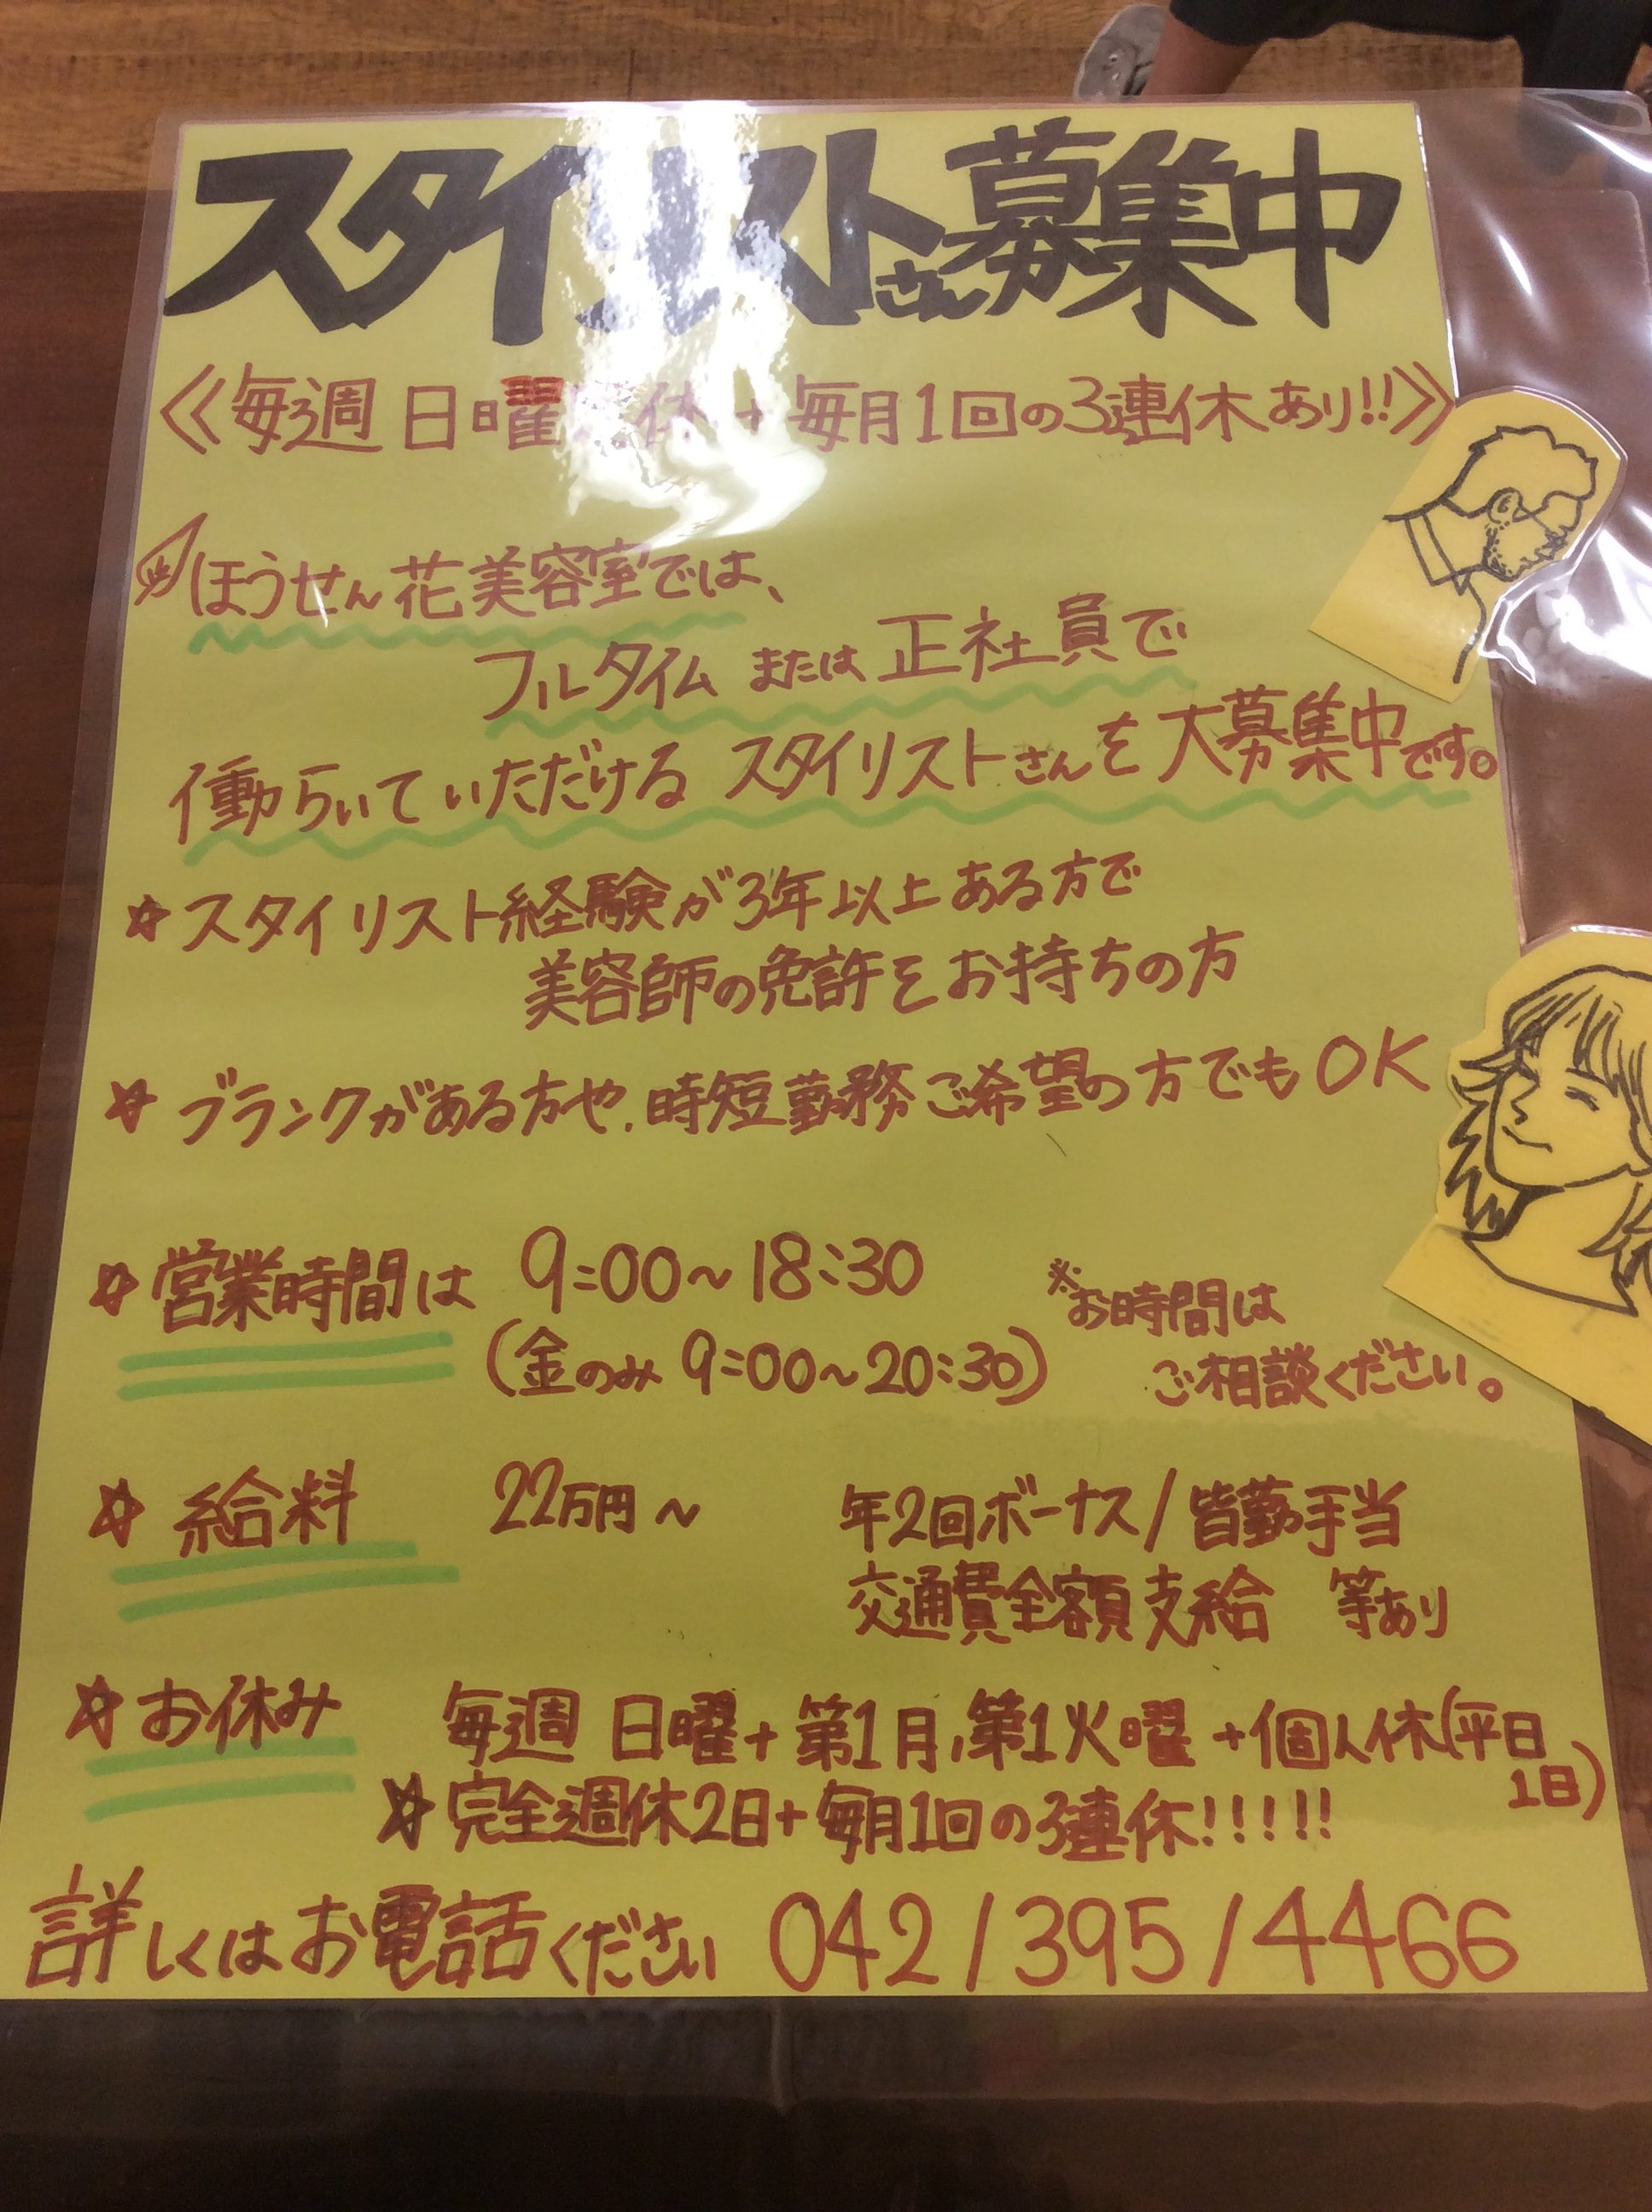 スタイリストさん募集中
《毎週 日曜定休 + 毎月1回の3連休あり!!》
ほうせん花美容室では、
フルタイム または 正社員で
働らいていただける スタイリストさんを大募集中です。
☆スタイリスト経験が3年以上ある方で
美容師の免許をお持ちの方
☆ブランクがある方や、時短勤務ご希望の方でもOK
☆営業時間は 9:00~18:30
(金のみ 9:00~20:30)
※お時間は
ご相談ください。
☆給料 22万円~ 年2回ボーナス/皆勤手当
交通費全額支給 等あり
☆お休み 毎週 日曜+第1月、第1火曜 +個人休(平日
1日)
☆完全週休2日+毎月1回の3連休!!!!!
詳しくはお電話ください 042/395/4466